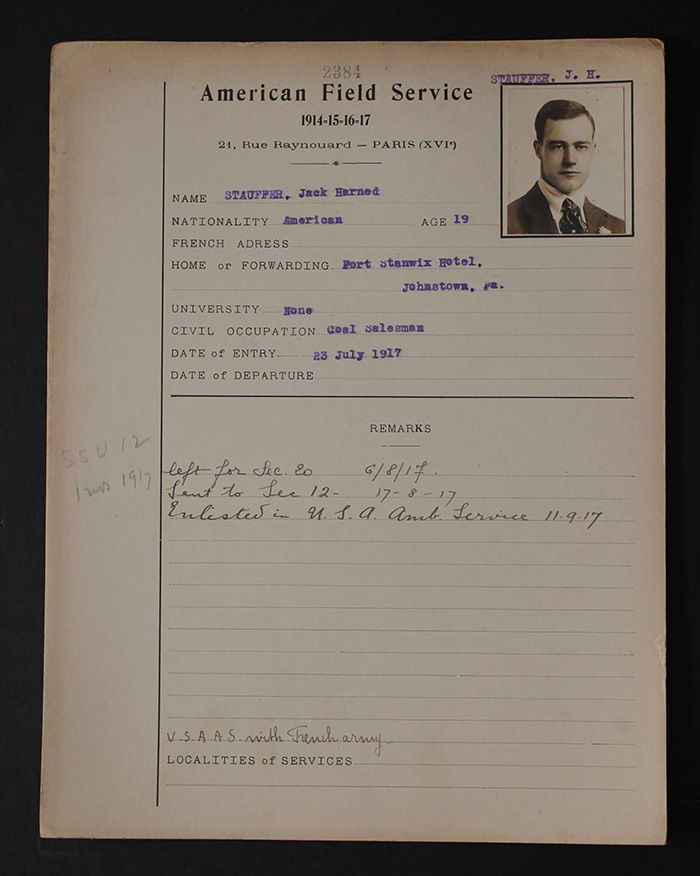 2384
STAUFFER, J. H.
American Field Service
1914-15-16-17
21, Rue Raynouard — PARIS (XVIe)
NAME STAUFFER, Jack Harned
NATIONALITY American AGE 19
FRENCH ADRESS
HOME or FORWARDING Fort Stanwix Hotel,
Johnstown, Pa.
UNIVERSITY None
CIVIL OCCUPATION Coal Salesman
DATE of ENTRY 23 July 1917
DATE of DEPARTURE
REMARKS
SSU 12
1917
left for Sec. 20 6/8/17.
Sent to Sec 12- 17-8-17
Enlisted in U. S. A. Amb. Service 11-9-17
U.S.A A S. with French army
LOCALITIES of SERVICES